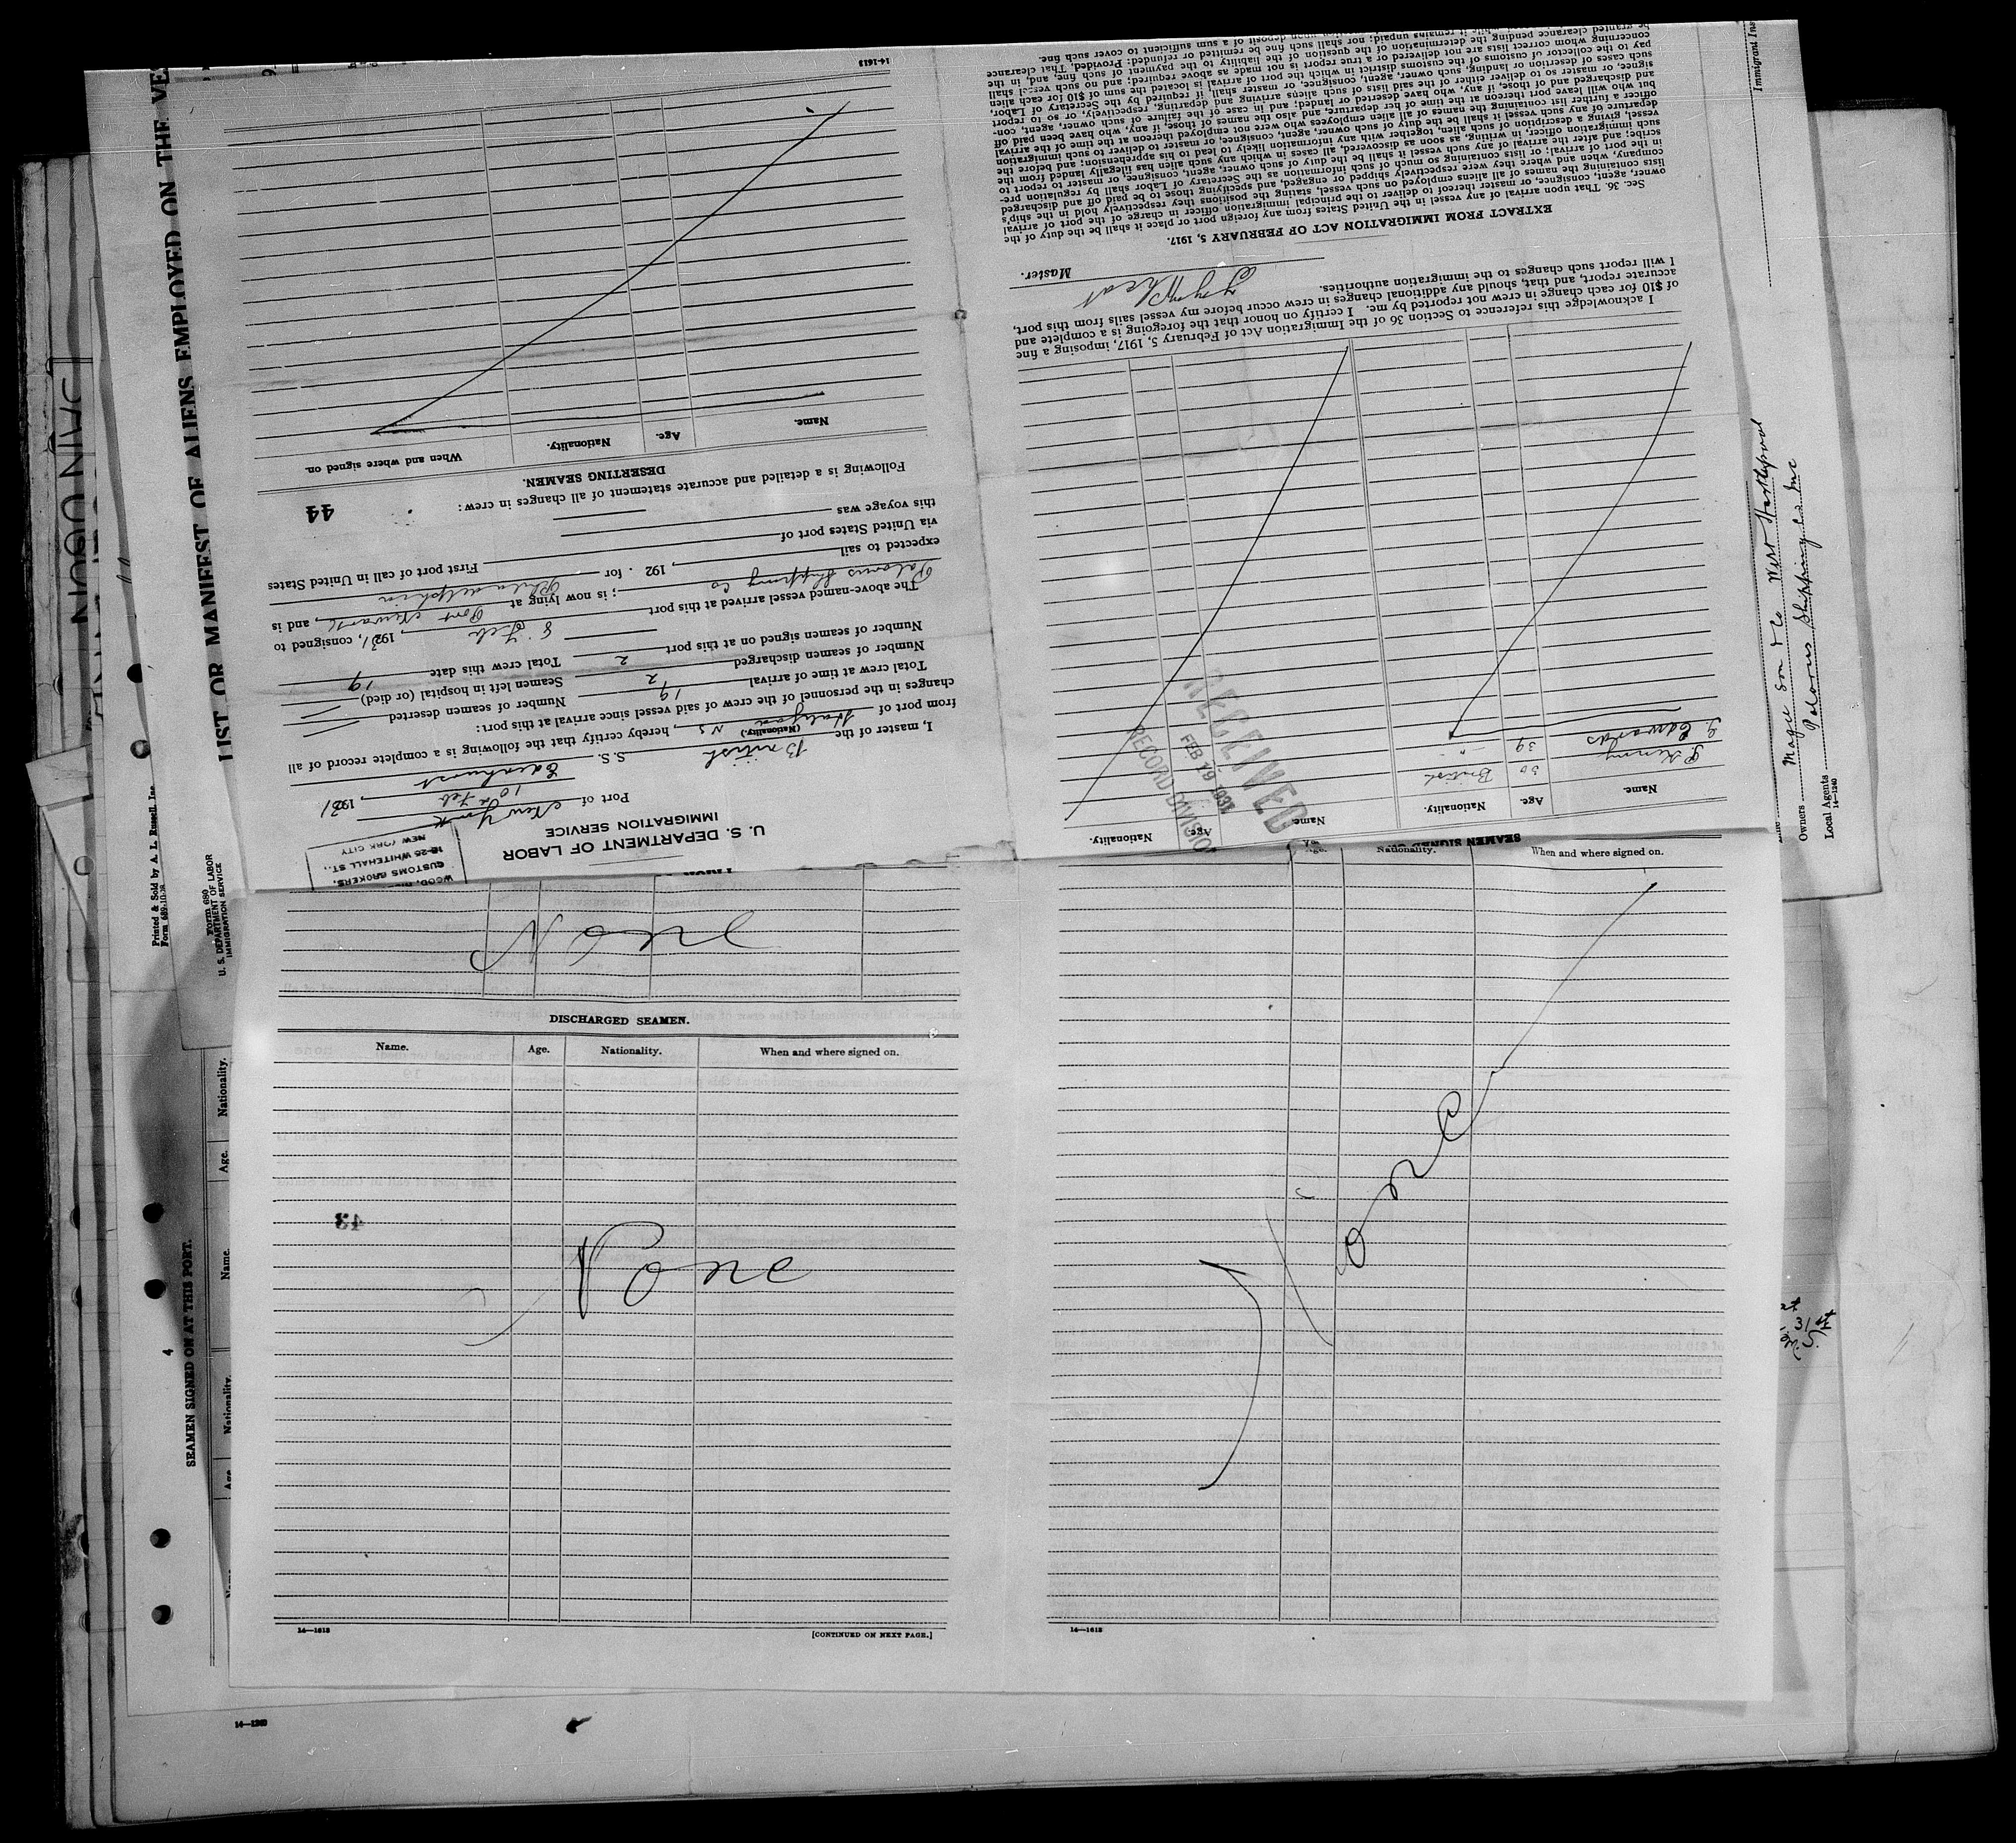 WOOD,
CUSTOMS BROKERS,
18-25 WHITEHALL ST.,
NEW YORK CITY
U. S. DEPARTMENT OF LABOR
IMMIGRATION SERVICE
Port of New York
10 Feb, 1931
I, master of the British S. S.
(Nationality.)
from port of Halifax N S, hereby certify that the following is a complete record of all
changes in the personnel of the crew of said vessel since arrival at this port:
Total crew at time of arrival 19 Number of seamen deserted
Number of seamen discharged 2 Seamen left in hospital (or died)
Number of seamen signed on at this port 2 Total crew this date 19
The above-named vessel arrived at this port 8 Feb, 1931, consigned to
Shipping Co; is now lying at Port Newark, and is
expected to sail, 192 . for Philadelphia First port of call in United States
via United States port of
this voyage was
Following is a detailed and accurate statement of all changes in crew:
44
DESERTING SEAMEN.
Name. Age. Nationality. When and where signed on.
14-1613
Name. Age. Nationality. Name Age. Nationality.
30 British
G. Edwards 39 -"-
RECEIVED
FEB 19 1931
RECORD DIVISION
I acknowledge this reference to Section 36 of the Immigration Act of February 5, 1917, imposing a fine
of $10 for each change in crew not reported by me. I certify on honor that the foregoing is a complete and
accurate report, and that, should any additional changes in crew occur before my vessel sails from this port,
I will report such changes to the immigration authorities.
Master.
EXTRACT FROM IMMIGRATION ACT OF FEBRUARY 5, 1917.
Sec. 36. That upon arrival of any vessel in the United States from any foreign port or place it shall be the duty of the
owner, agent, consignee, or master thereof to deliver to the principal immigration officer in charge of the port of arrival
lists containing the names of all aliens employed on such vessel, stating the positions they respectively hold in the ship's
company, when and where they were respectively shipped or engaged, and specifying those to be paid off and discharged
in the port of arrival; or lists containing so much of such information as the Secretary of Labor shall by regulation pre-
scribe; and after the arrival of any such vessel it shall be the duty of such owner, agent, consignee, or master to report to
such immigration officer, in writing, as soon as discovered, all cases in which any such alien has illegally landed from the
vessel, giving a description of such alien, together with any information likely to lead to his apprehension; and before the
departure of any such vessel it shall be the duty of such owner, agent, consignee, or master to deliver to such immigration
officer a further list containing the names of all alien employees who were not employed thereon at the time of the arrival
but who will leave port thereon at the time of her departure, and also the names of those, if any, who have been paid off
and discharged and of those, if any, who have deserted or landed; and in case of the failure of such owner, agent, con-
signee, or master so to deliver either of the said lists of such aliens arriving and departing, respectively, or so to report
such cases of desertion or landing, such owner, agent, consignee, or master shall, if required by the Secretary of Labor,
pay to the collector of customs of the customs district in which the port of arrival is located the sum of $10 for each alien
concerning whom correct lists are not delivered or a true report is not made as above required; and no such vessel shall
be granted clearance pending the determination of the question of the liability to the payment of such fine, and, in the
while it remains unpaid; nor shall such fine be remitted or refunded: Provided, That clearance
upon deposit of a sum sufficient to cover such fine.
None
DISCHARGED SEAMEN.
Name. Age. Nationality. When and where signed on.
43
None
14—1613 [CONTINUED ON NEXT PAGE.]
SEAMEN SIGNED
Age. Nationality. When and where signed on.
None
14—1613
LIST OR MANIFEST OF ALIENS EMPLOYED ON THE VE
Printed & Sold by A. L. Russell, Inc
Form 689-10-28
Form 680
U. S. DEPARTMENT OF LABOR
IMMIGRATION SERVICE
4
SEAMEN SIGNED ON AT THIS PORT.
Name. Age. Nationality.
Name Age. Nationality.
14—1240
Immigrant Ins
Owners Magee Son & Co West Hartlepool
Local Agents Palorus Shipping Co Inc
14-1240